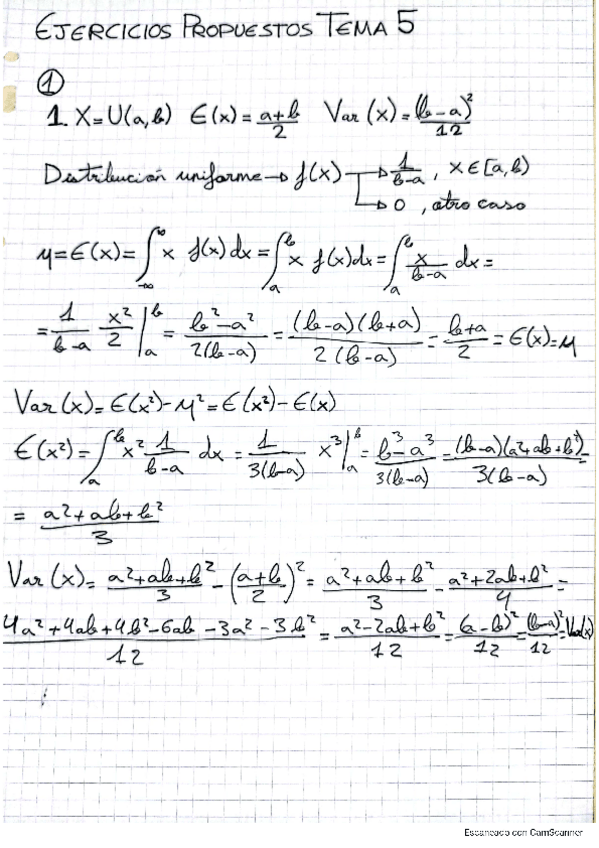 EJERCICIOS PROPUESTOS TEMA 5
①
1. X=U(a,b) E(x)=(a+b)/2 Var(x)=(b-a)²/12
Distribución uniforme → f(x) → 1/(b-a), x∈[a,b)
→ 0, otro caso
μ=E(x)=∫_{-∞}^{∞} x f(x)dx=∫_a^b x f(x)dx=∫_a^b x/(b-a) dx=
=1/(b-a) x²/2 |_a^b = (b²-a²)/(2(b-a)) = (b-a)(b+a)/(2(b-a)) = (b+a)/2 = E(x)=μ
Var(x)=E(x²)-μ²=E(x²)-E(x)
E(x²)=∫_a^b x² 1/(b-a) dx = 1/(3(b-a)) x³|_a^b = (b³-a³)/(3(b-a)) = (b-a)(a²+ab+b²)/(3(b-a)) =
= (a²+ab+b²)/3
Var(x)= (a²+ab+b²)/3 - ((a+b)/2)² = (a²+ab+b²)/3 - (a²+2ab+b²)/4 =
(4a²+4ab+4b²-6ab-3a²-3b²)/12 = (a²-2ab+b²)/12 = (a-b)²/12 = (b-a)²/12 = Var(x)
Escaneado con CamScanner